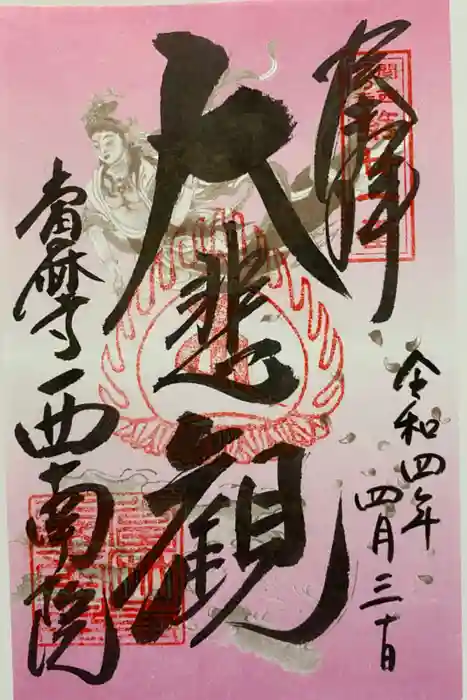 奉拝
令和四年
四月三十日
大悲観
當麻寺西南院